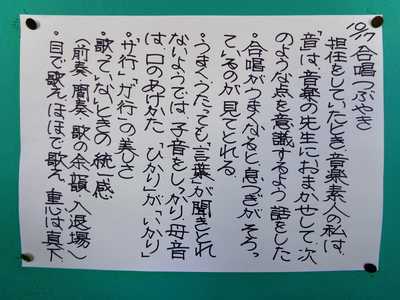 10/17 合唱つぶやき
担任をしていたとき、音楽素人の私は、
「音は、音楽の先生におまかせして、次
のような点を意識するよう話をした
・合唱がうまくなると、息つぎがそろっ
ているのが見てとれる。
・うまくうたっても、言葉が聞きとれ
ないようでは、子音をしっかり、母音
は、口のあけかた「ひかり」が「いかり」
・「サ行」「ガ行」の美しさ
・歌っていないときの統一感
〈前奏、間奏、歌の余韻、入退場〉
・目で歌え、ほほで歌え、重心は真下